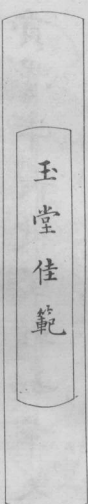 玉堂佳範